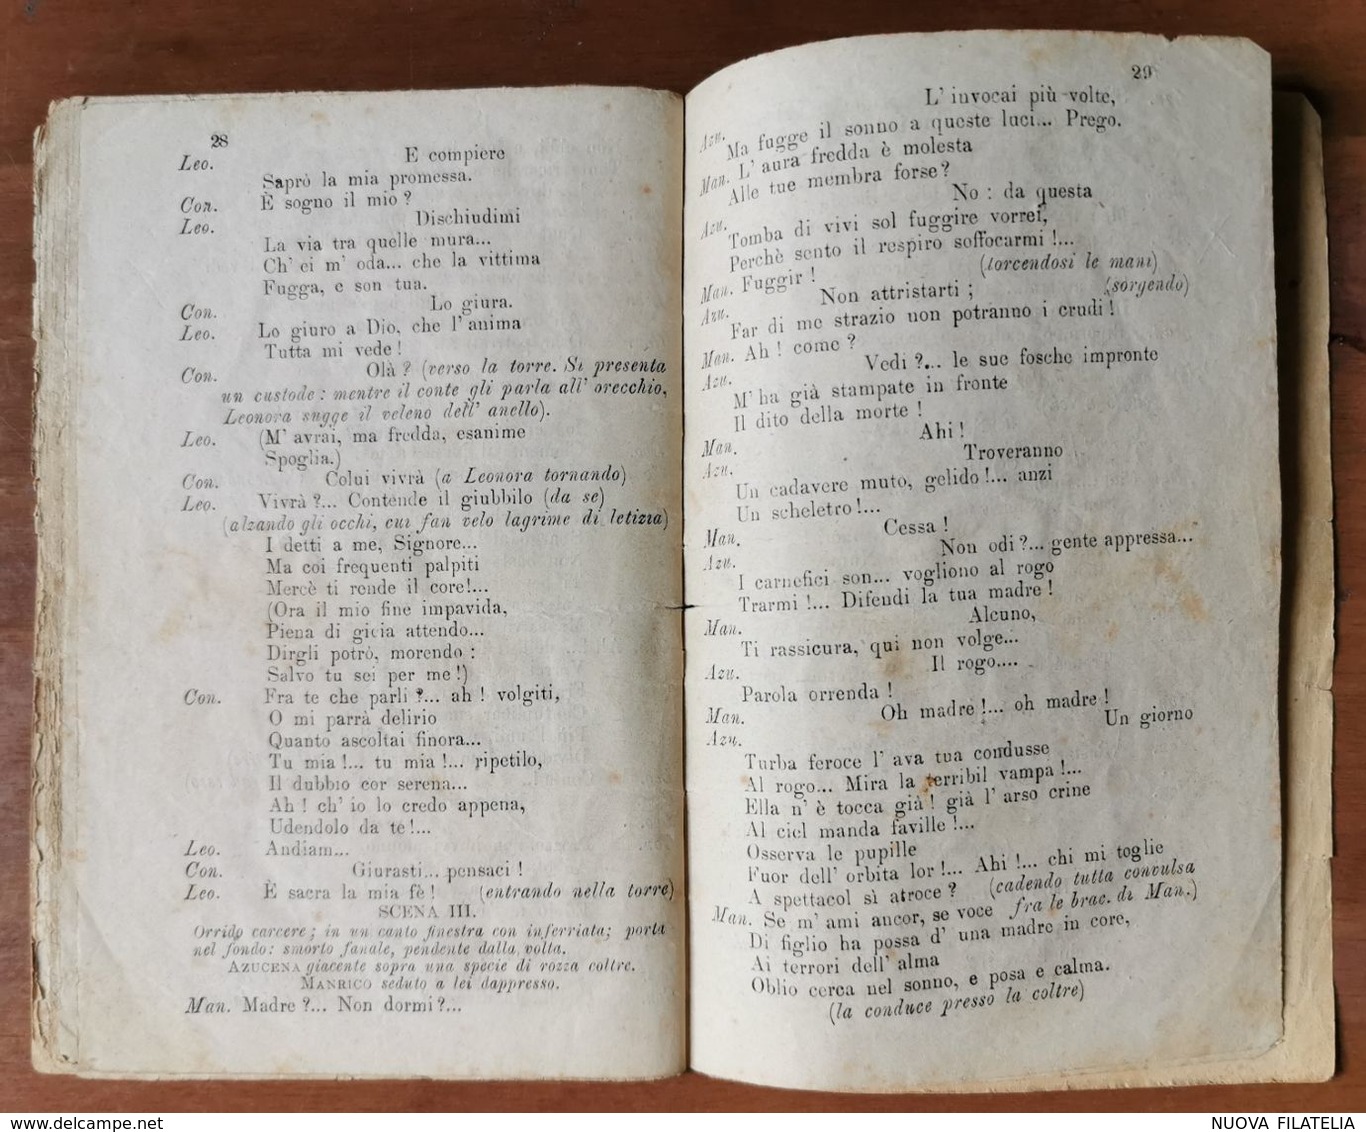 28
Leo. E compiere
Saprò la mia promessa.
Con. È sogno il mio ?
Leo. Dischiudimi
La via tra quelle mura...
Ch' ei m' oda... che la vittima
Fugga, e son tua.
Con. Lo giura.
Leo. Lo giuro a Dio, che l'anima
Tutta mi vede !
Con. Olà ? (verso la torre. Si presenta
un custode : mentre il conte gli parla all' orecchio,
Leonora sugge il veleno dell' anello).
Leo. (M' avrai, ma fredda, esanime
Spoglia.)
Con. Colui vivrà (a Leonora tornando)
Leo. Vivrà ?... Contende il giubbilo (da se)
(alzando gli occhi, cui fan velo lagrime di letizia)
I detti a me, Signore...
Ma coi frequenti palpiti
Mercè ti rende il core!...
(Ora il mio fine impavida,
Piena di gioia attendo...
Dirgli potrò, morendo :
Salvo tu sei per me !)
Con. Fra te che parli ?... ah ! volgiti,
O mi parrà delirio
Quanto ascoltai finora...
Tu mia !... tu mia !... ripetilo,
Il dubbio cor serena...
Ah ! ch' io lo credo appena,
Udendolo da te !...
Leo. Andiam...
Con. Giurasti... pensaci !
Leo. È sacra la mia fè ! (entrando nella torre)
SCENA III.
Orrido carcere ; in un canto finestra con inferriata; porta
nel fondo: smorto fanale, pendente dalla volta.
AZUCENA giacente sopra una specie di rozza coltre.
MANRICO seduto a lei dappresso.
Man. Madre ?... Non dormi ?...
29
Azu. L' invocai più volte,
Ma fugge il sonno a queste luci... Prego.
Man. L' aura fredda è molesta
Alle tue membra forse ?
Azu. No : da questa
Tomba di vivi sol fuggire vorrei,
Perchè sento il respiro soffocarmi !...
Man. Fuggir ! (torcendosi le mani)
Azu. Non attristarti ; (sorgendo)
Far di me strazio non potranno i crudi !
Man. Ah ! come ?
Azu. Vedi ?... le sue fosche impronte
M' ha già stampate in fronte
Il dito della morte !
Man. Ahi !
Azu. Troveranno
Un cadavere muto, gelido !... anzi
Un scheletro !...
Man. Cessa !
Azu. Non odi ?... gente appressa...
I carnefici son... vogliono al rogo
Trarmi !... Difendi la tua madre !
Man. Alcuno,
Ti rassicura, qui non volge...
Azu. Il rogo....
Parola orrenda !
Man. Oh madre !... oh madre !
Azu. Un giorno
Turba feroce l' ava tua condusse
Al rogo... Mira la terribil vampa !...
Ella n' è tocca già ! già l' arso crine
Al ciel manda faville !...
Osserva le pupille
Fuor dell' orbita lor !... Ahi !... chi mi toglie
A spettacol sì atroce ? (cadendo tutta convulsa
fra le brac. di Man.)
Man. Se m' ami ancor, se voce
Di figlio ha possa d' una madre in core,
Ai terrori dell' alma
Oblio cerca nel sonno, e posa e calma.
(la conduce presso la coltre)
www.delcampe.net
NUOVA FILATELIA